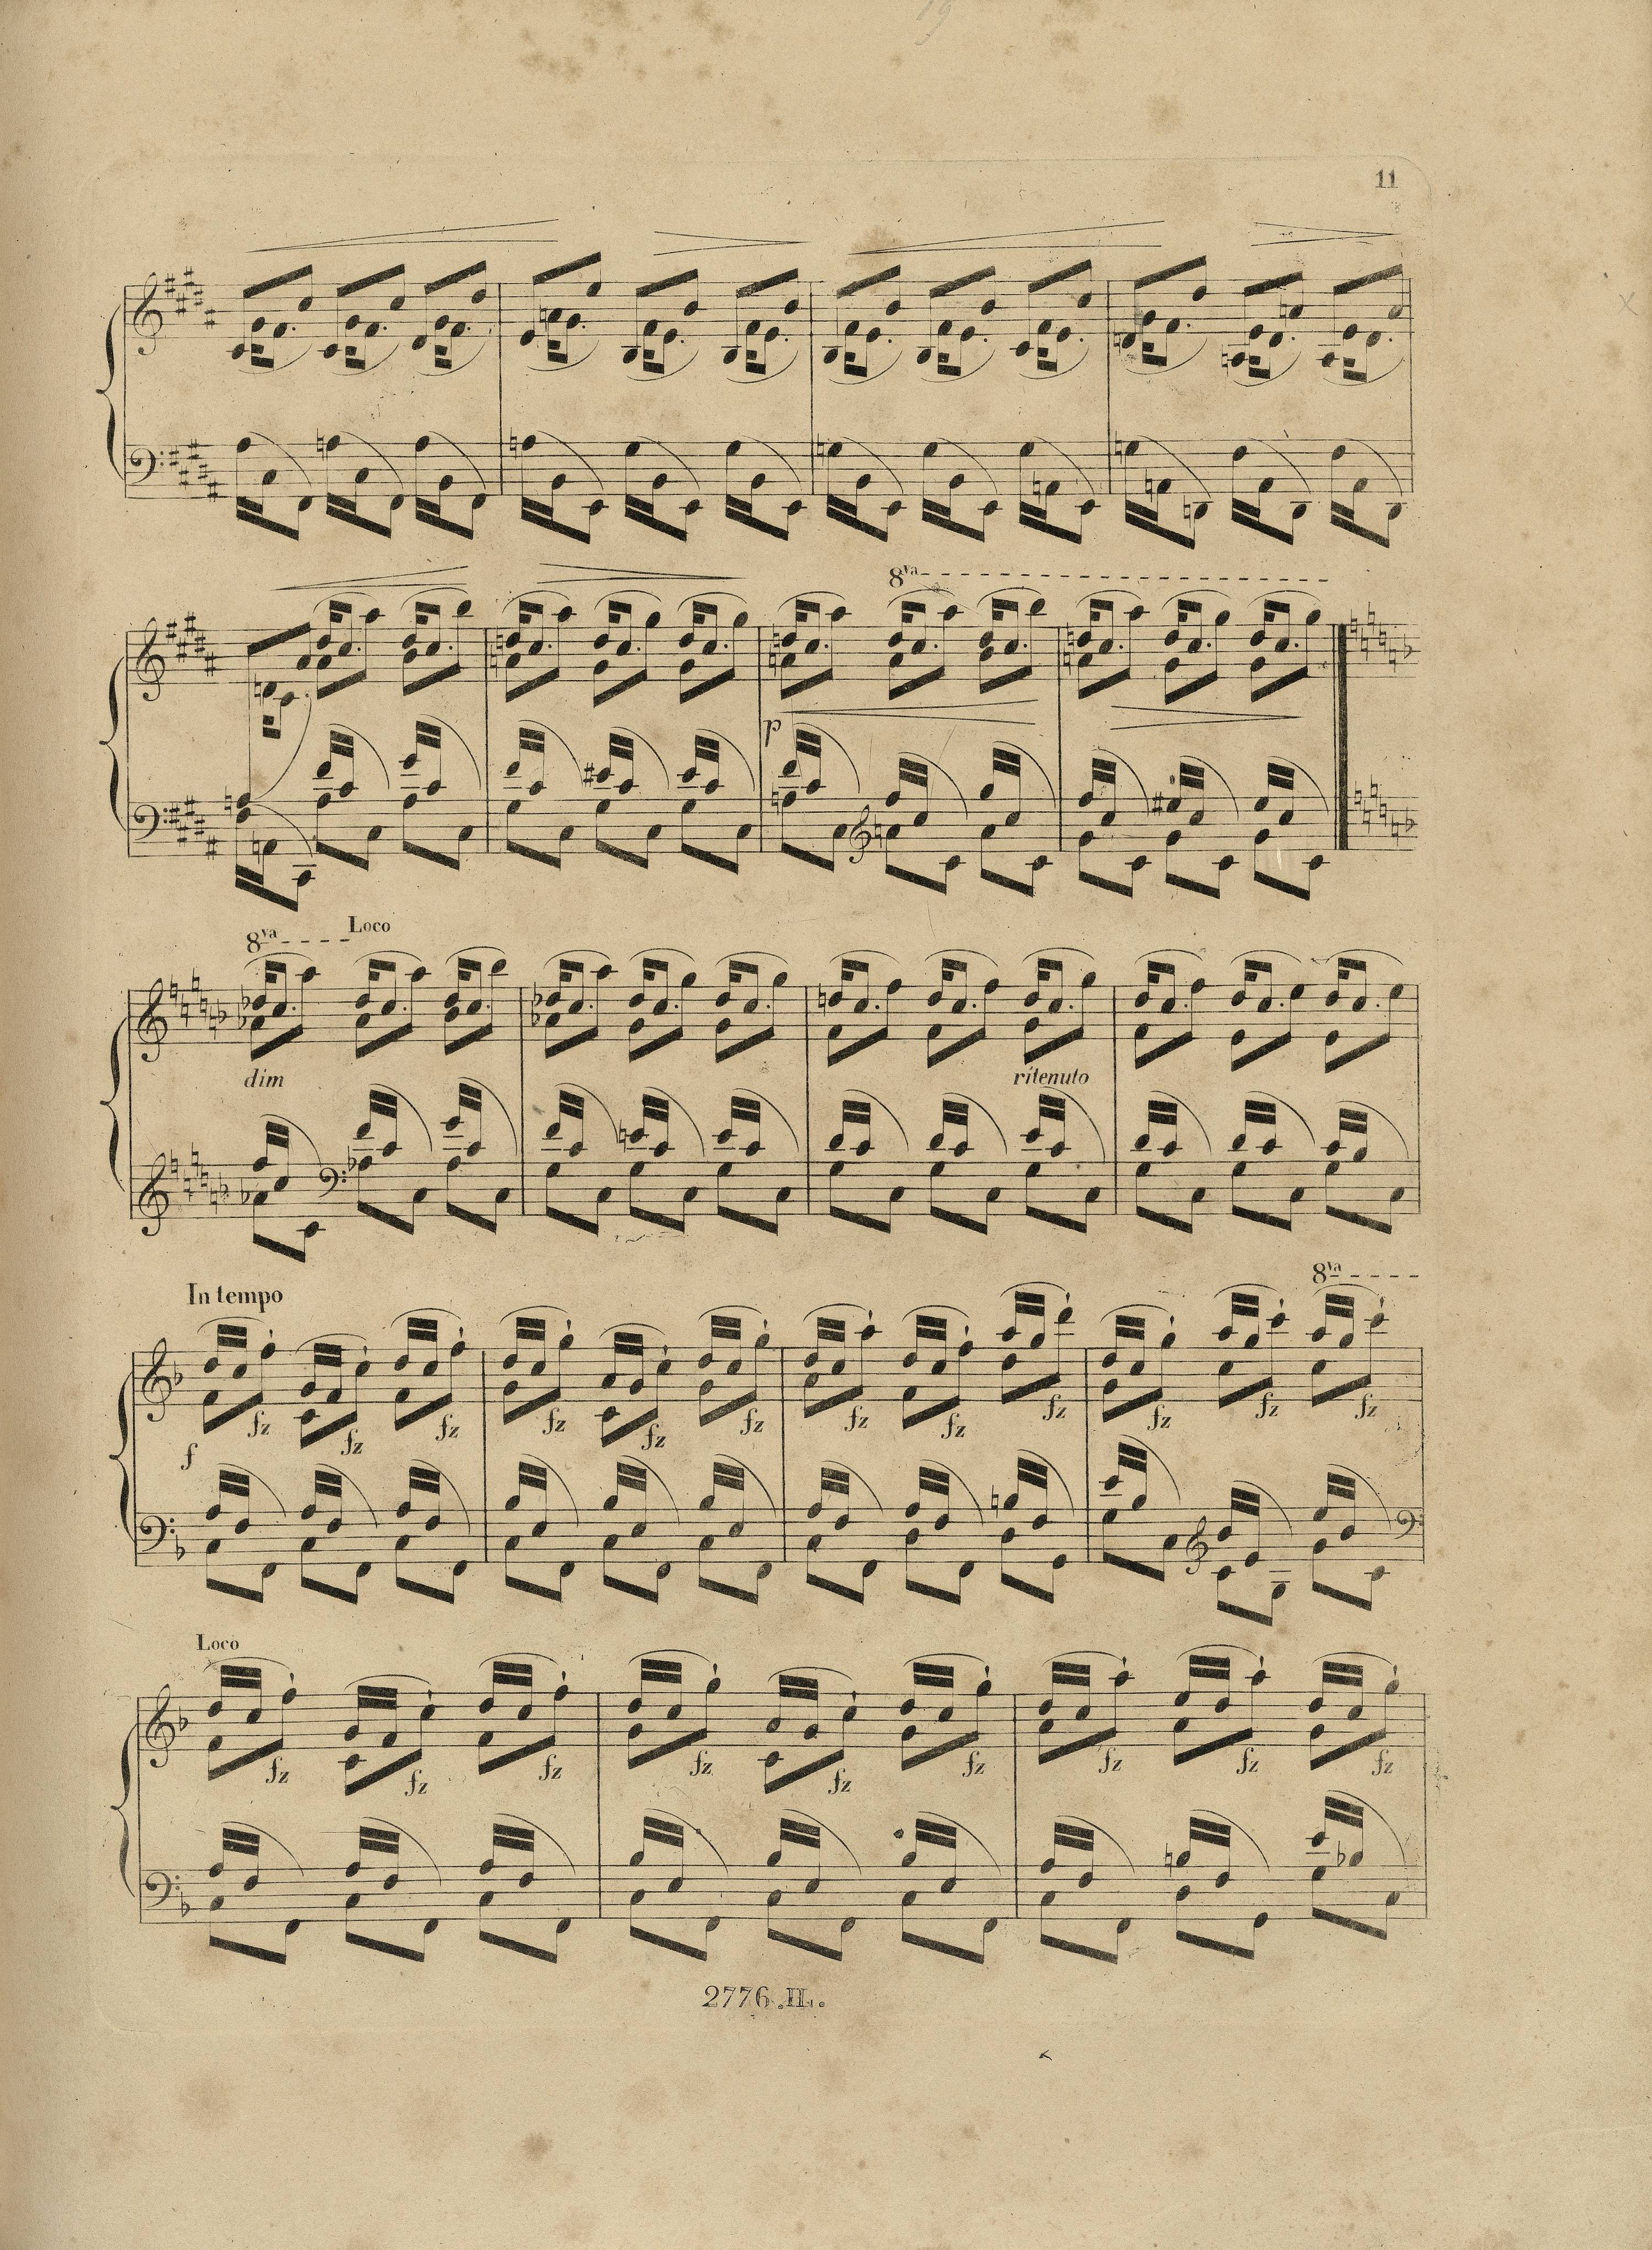 11
8va
p
8va Loco
dim ritenuto
In tempo 8va
fz fz fz fz fz fz fz fz fz fz fz fz
f
Loco
fz fz fz fz fz fz fz fz fz
2776.II.